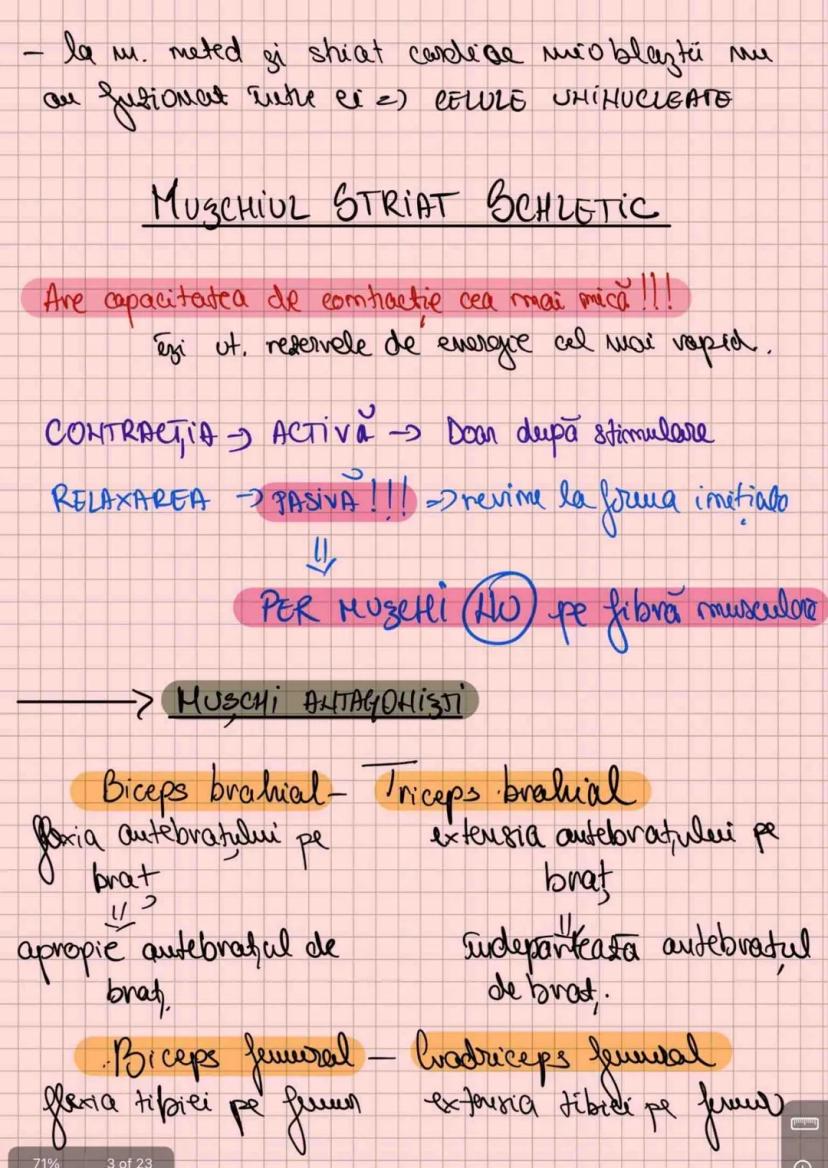 - la m. neted și striat cardiac mioblaștii nu
au fuzionat între ei => CELULE UNINUCLEATE
MUȘCHIUL STRIAT SCHLETIC
Are capacitatea de contracție cea mai mică!!!
își ut. rezervele de energie cel mai rapid.
CONTRACȚIA → ACTIVĂ → Doar după stimulare
RELAXAREA → PASIVĂ!!! => revine la forma inițială
⇓
PER MUSCHI NU pe fibră musculară
→ MUȘCHI ANTAGONIȘTI
Biceps brahial - Triceps brahial
flexia antebrațului pe extensia antebrațului pe
braț braț
⇓ ⇓
apropie antebrațul de îndepărtează antebrațul
braț. de braț.
Biceps femural - Cvadriceps femural
flexia tibiei pe femur extensia tibiei pe femur
71% 3 of 23